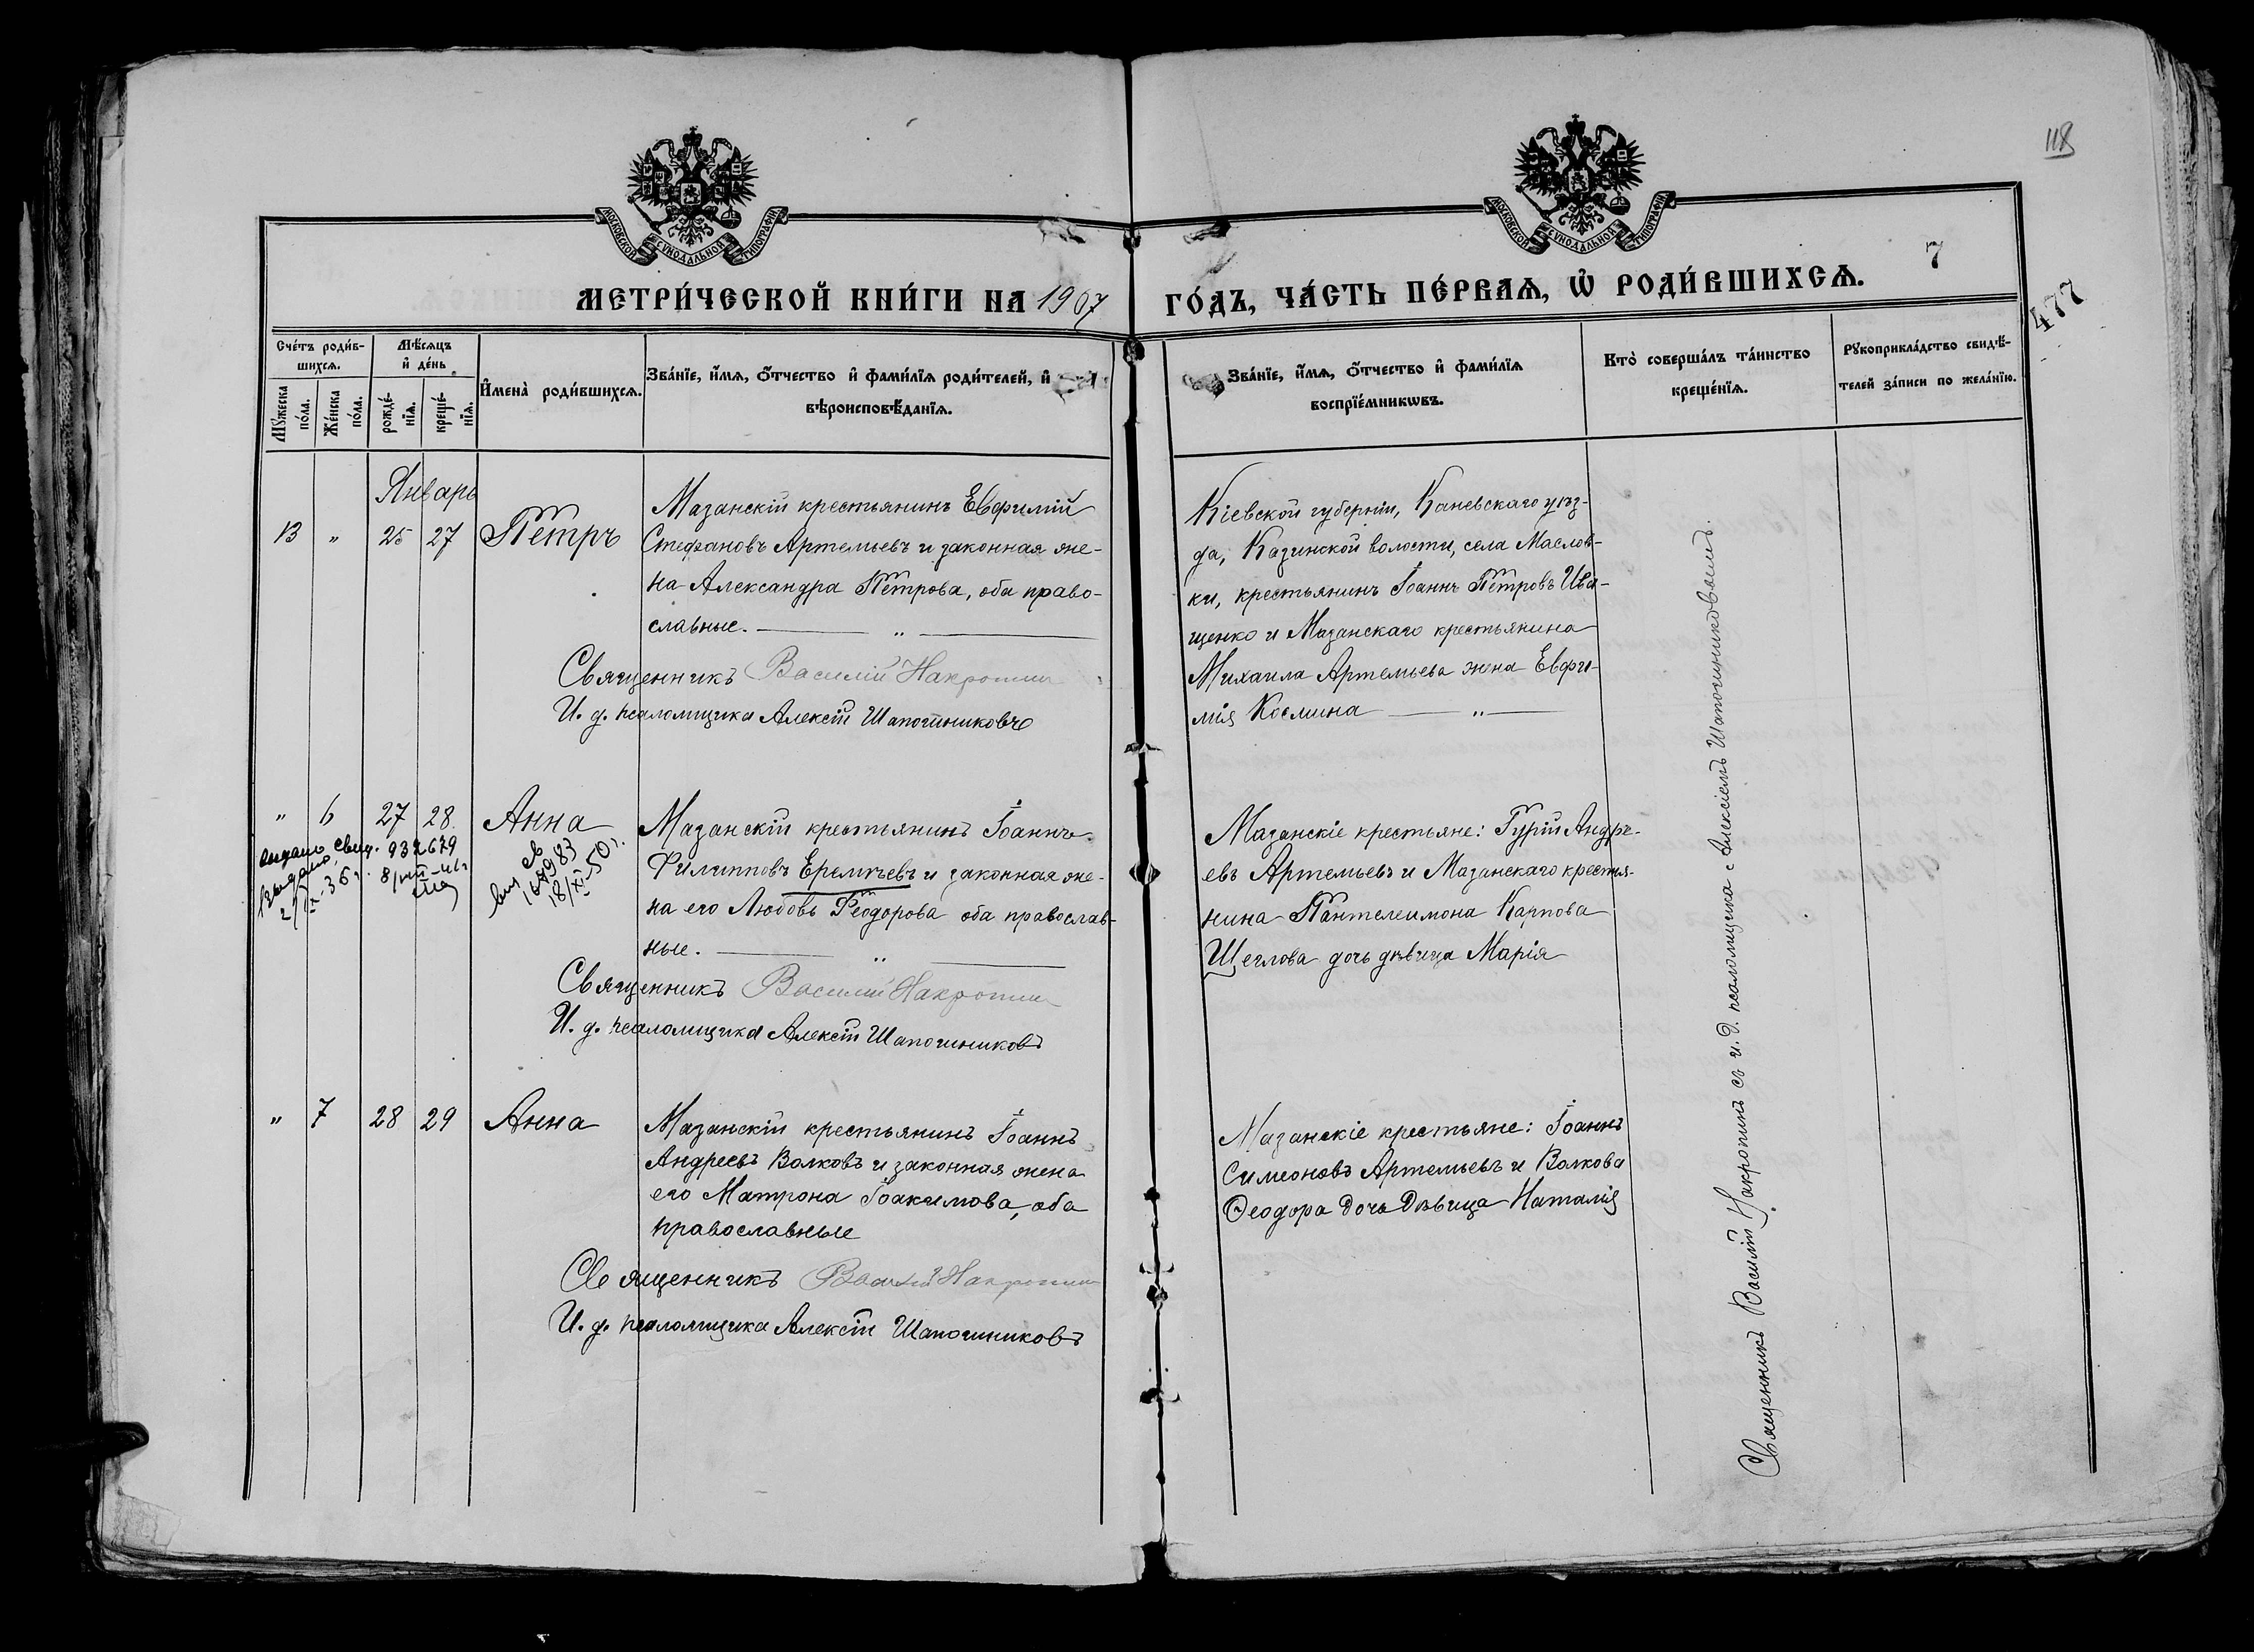 118
МОСКОВСКОЙ СѴНОДАЛЬНОЙ ТИПОГРАФІИ
МОСКОВСКОЙ СѴНОДАЛЬНОЙ ТИПОГРАФІИ
7
477
МЕТРИ́ЧЕСКОЙ КНИ́ГИ НА 1907 ГО́ДЪ, ЧА́СТЬ ПЕ́РВАѦ, Ѡ҆ РОДИ́ВШИХСѦ.
Сче́тъ роди́в-
шихсѧ.
Мꙋ́жеска
по́ла.
Же́нска
по́ла.
Мѣ́сѧцъ
и҆ де́нь
рожде́-
нїѧ.
креще́-
нїѧ.
И҆мена̀ роди́вшихсѧ.
Зва́нїе, и҆́мѧ, ѻ҆́тчество и҆ фами́лїѧ роди́телей, и҆
вѣроисповѣ́данїѧ.
Зва́нїе, и҆́мѧ, ѻ҆́тчество и҆ фами́лїѧ
воспрїе́мникѡвъ.
Кто̀ соверша́лъ та́инство
креще́нїѧ.
Рꙋкоприкла́дство свидѣ́-
телей за́писи по жела́нїю.
Январь
13 " 25 27 Петръ
Мазанскій крестьянинъ Евфимій
Стефановъ Артемьевъ и законная же-
на Александра Петрова, оба право-
славные. — " —
Священникъ Василій Накропин
И. д. псаломщика Алексій Шапошниковъ
Кіевской губерніи, Каневскаго уѣз-
да, Казинской волости, села Маслов-
ки, крестьянинъ Іоаннъ Петровъ Ива-
щенко и Мазанскаго крестьянина
Михаила Артемьева жена Евфи-
мія Космина — " —
" 6 27 28 Анна
выдано свид. 932679
выдано
8/VIII
св
18/XI 50 г.
Мазанскій крестьянинъ Іоаннъ
Филипповъ Еремѣевъ и законная же-
на его Любовь Феодорова оба православ-
ные. — " —
Священникъ Василій Накропин
И. д. псаломщика Алексій Шапошниковъ
Мазанскіе крестьяне: Гурій Андре-
евъ Артемьевъ и Мазанскаго крестья-
нина Пантелеимона Карпова
Щеглова дочь дѣвица Марія
" 7 28 29 Анна
Мазанскій крестьянинъ Іоаннъ
Андреевъ Волковъ и законная жена
его Матрона Іоакимова, оба
православные
Священникъ Василій Накропин
И. д. псаломщика Алексій Шапошниковъ
Мазанскіе крестьяне: Іоаннъ
Симеоновъ Артемьевъ и Волкова
Ѳеодора дочь дѣвица Наталія
Священникъ Василій Накропинъ съ и. д. псаломщика с Алексіемъ Шапошниковымъ.